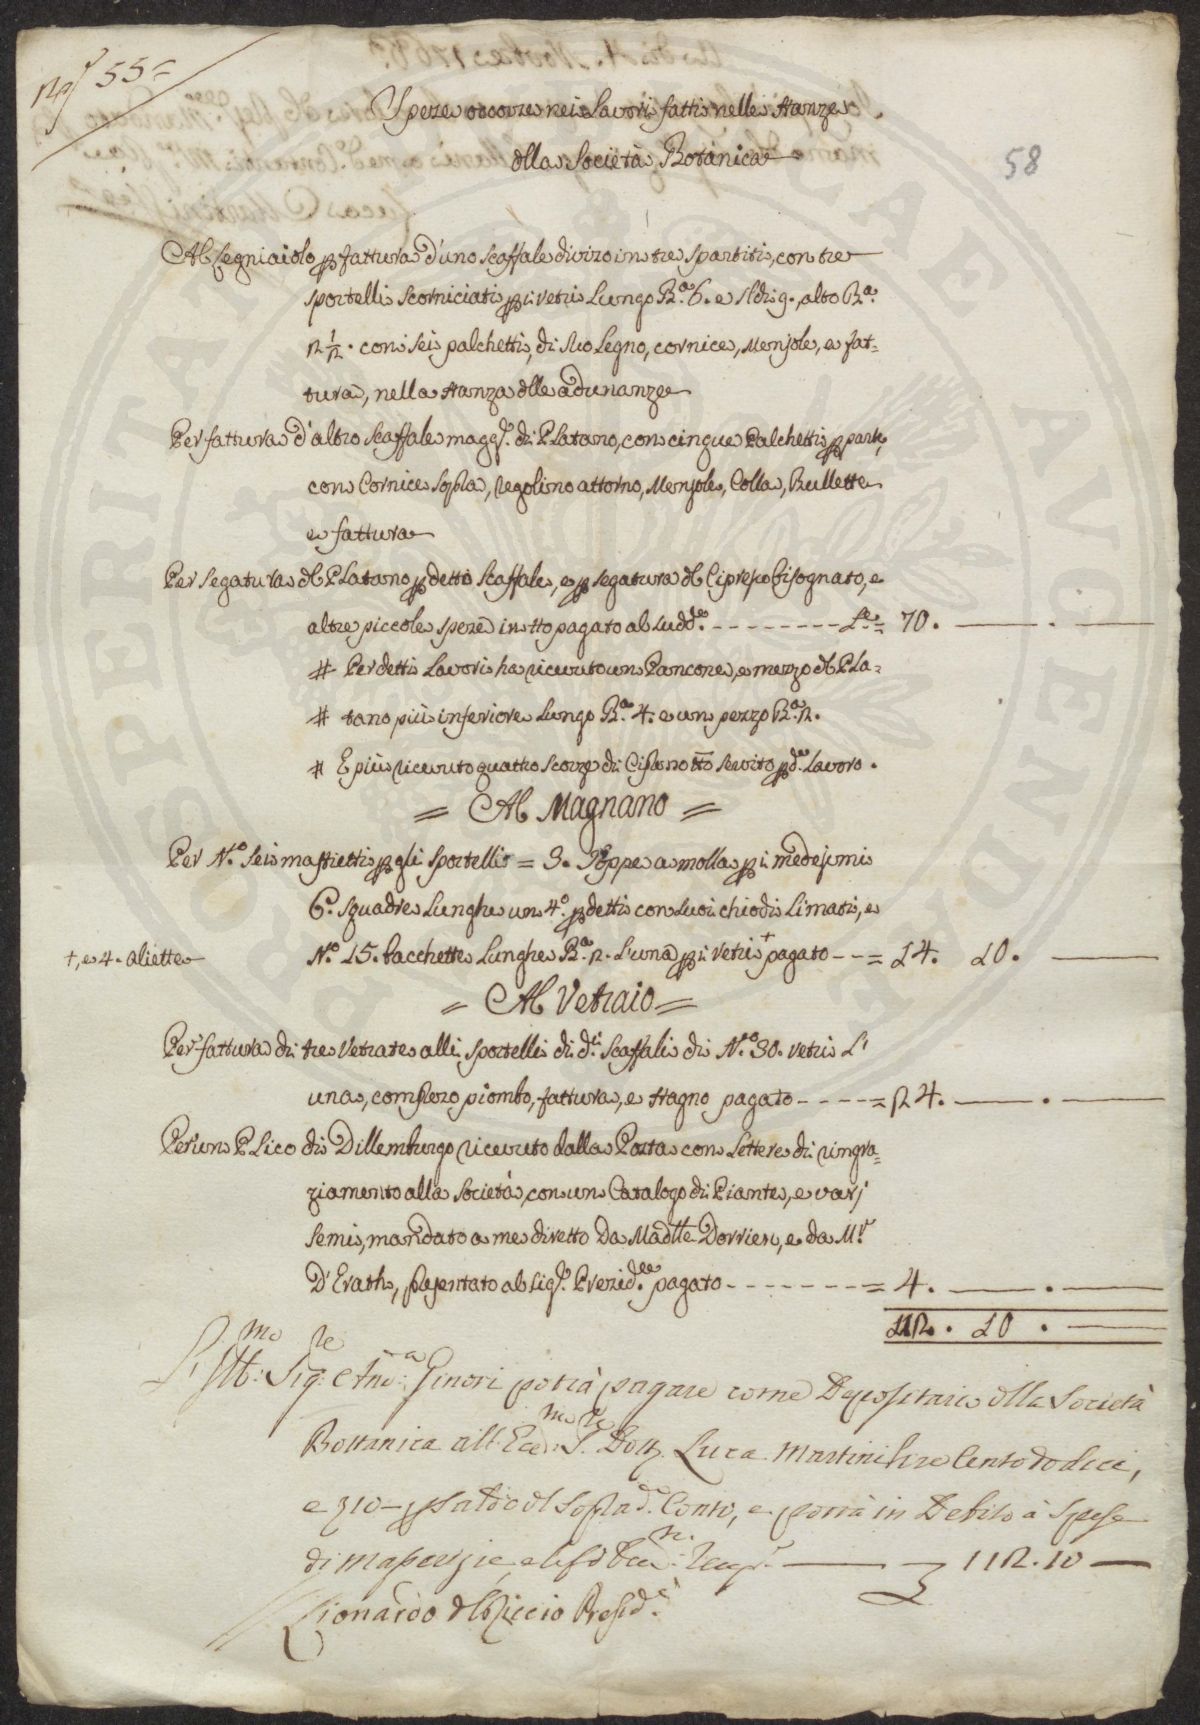 N.° 55=
58
Spese occorse nei Lavori fatti nelle Stanze
dlla Società Botanica
Al Legniaiolo p fattura d'uno Scaffale diviso in tre spartiti, con tre
sportelli scorniciati p i vetri Lungo B.a 6. e sldi 9. alto B.a
2 1/2. con sei palchetti, di suo Legno, cornice, Mensole, e fat=
tura, nella stanza dlle adunanze
Per fattura d'altro Scaffale magg.e di Platano, con cinque Palchetti p parte,
con Cornice sopra, regolino attorno, Mensole, Colla, Bullette
e fattura
Per segatura dl Platano p detto Scaffale, e p segatura dl Cipresso bisognato, e
altre piccole spese in tto pagato al sudd.o - - - - - - - - L.e = 70. — . —
# Per detti Lavori ha ricevuto un Pancone, e mezzo dl Pla=
# tano più inferiore Lungo B.a 4. e un pezzo B.a 2.
# E più ricevuto quattro scorze di Cipresso tto servito p d.o Lavoro.
= Al Magnano =
Per N.o Sei mastietti p gli sportelli = 3. Toppe a molla p i medesimi
6. squadre Lunghe un 4.o p detti con suoi chiodi Limati, e
+, e 4. aliette
N.o 15. bacchette Lunghe B.a 2. L'una p i vetri + pagato - - = 14. 10. —
= Al Vetraio =
Per fattura di tre Vetrate alli sportelli di d.i Scaffali di N.o 30. vetri L'
una, compreso piombo, fattura, e stagno pagato - - - - - = 24. — . —
Per un Plico di Dillemburgo ricevuto dalla Posta con Lettere di ringra=
ziamento alla Società, con un Catalogo di Piante, e varj
semi, mandato a me diretto Da Madlle Dorrien, e da M.r
D'Erath, presentato al Sig.e Presid.ee pagato - - - - - - - = 4. — . —
112. 10. —
L'Ill:mo Sig:re And:a Ginori potrà pagare come Depositario dlla Società
Bottanica all'Ecc:mo S.re Dott. Luca Martini lire Cento dodeci,
e 10 — p saldo dl sopra d.o Conto, e porrà in Debito à Spese
di masserizie 112. 10 —
Lionardo dl Riccio Presid.e